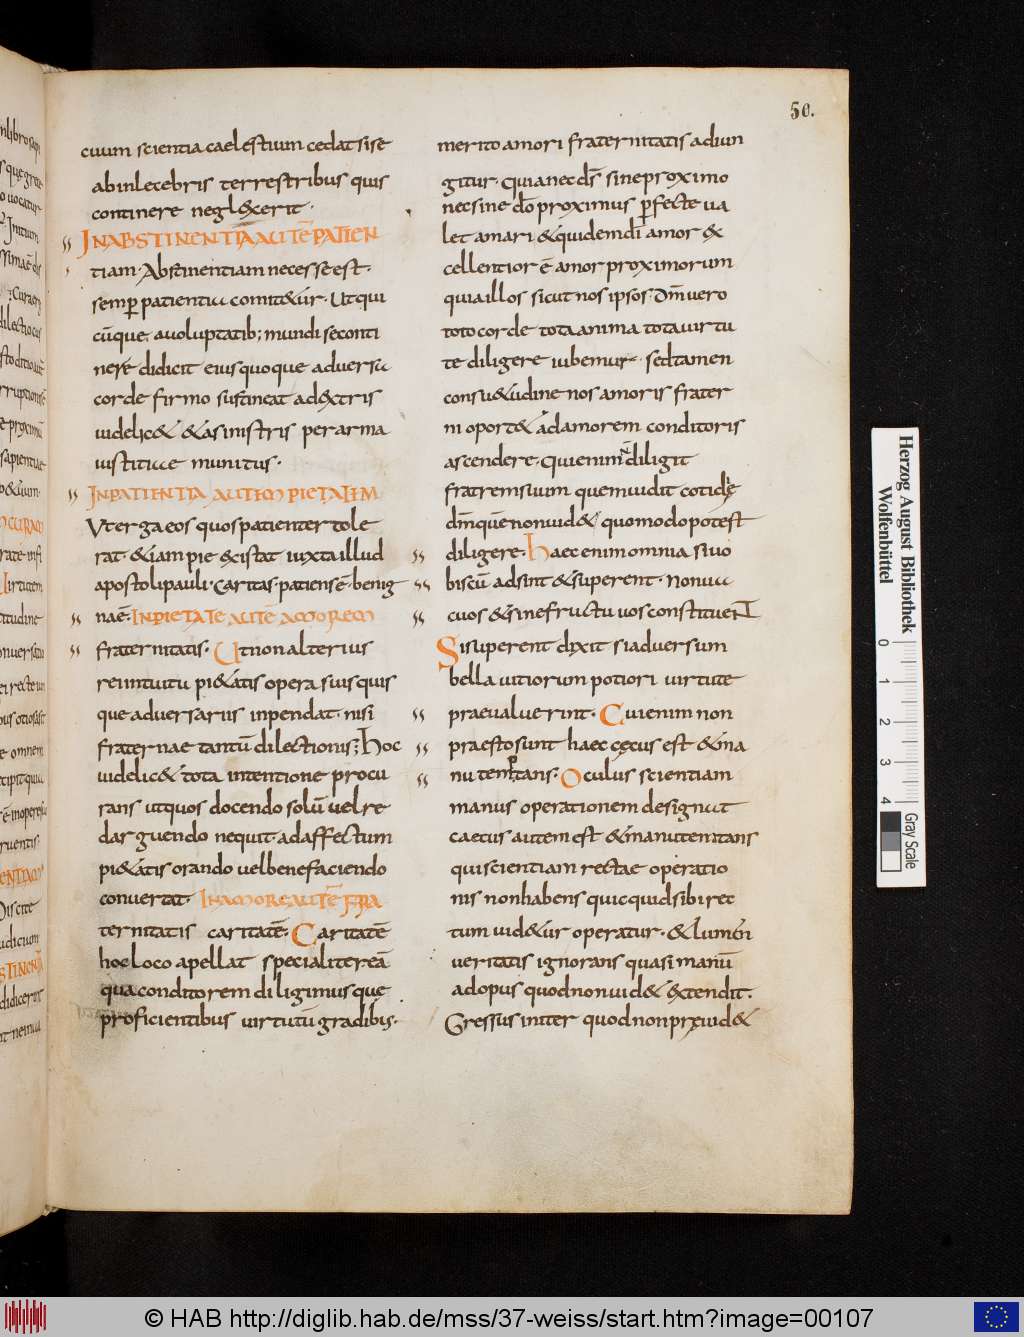 50.
cuum scientia caelestium cedat si se
ab inlecebris terrestribus quis
continere neglexerit.
IN ABSTINENTIA AUTĒ PATIEN
tiam. Abstinentiam necesse est.
semp patientia comit&ur. Ut qui
cūque a uoluptatib; mundi se conti
nere didicit eius quoque aduersa
corde firmo sustineat a dextris
uidelic& & a sinistris per arma
iustitiae munitus.
IN PATIENTIA AUTEM PIETATEM
Ut erga eos quos patienter tole
rat. & iam pie existat iuxta illud
apostoli pauli. Caritas patiens ē benig
na ē. IN PIETATE AUTĒ AMOREM
fraternitatis. Ut non alterius
rei intuitu pi&atis opera suis quis
que aduersariis inpendat. nisi
fraternae tantū dilectionis; Hoc
uidelic& tota intentione procu
rans ut quos docendo solū uel re
darguendo nequit. ad affectum
pi&atis orando uel benefaciendo
conuertat. IN AMORE AUTĒ FRA
ternitatis caritatē. Caritatē
hoc loco apellat specialiter eā
qua conditorem diligimus que
proficientibus uirtutū gradibus.
merito amori fraternitatis adiun
gitur. Quia nec ds̄ sine proximo
nec sine dō proximus pfecte ua
let amari & quidem dī amor ex
cellentior ē amor proximorum
quia illos sicut nos ipsos. Dm̄ uero
toto corde tota anima tota uirtu
te diligere iubemur. sed tamen
consu&udine nos amoris frater
ni oport& ad amorem conditoris
ascendere. Qui enim n̄ diligit
fratrem suum quem uidit cotidie
dm̄ quem non uid& quomodo potest
diligere. Haec enim omnia si uo
biscū adsint & superent. Non ua
cuos & sine fructu uos constituent
Si superent dixit si aduersum
bella uitiorum potiori uirtute
praeualuerint. Cui enim non
praesto sunt haec cęcus est & ma
nu temptans. Oculus scientiam
manus operationem designat
caecus autem est & manu temtans
qui scientiam rectae operatio
nis non habens quicquid sibi rec
tum uid&ur operatur. & lumen
ueritatis ignorans quasi manū
ad opus quod non uid& extendit.
Gressus in iter quod non pręuid&
Herzog August Bibliothek
Wolfenbüttel
0 1 2 3 4
Gray Scale
© HAB http://diglib.hab.de/mss/37-weiss/start.htm?image=00107